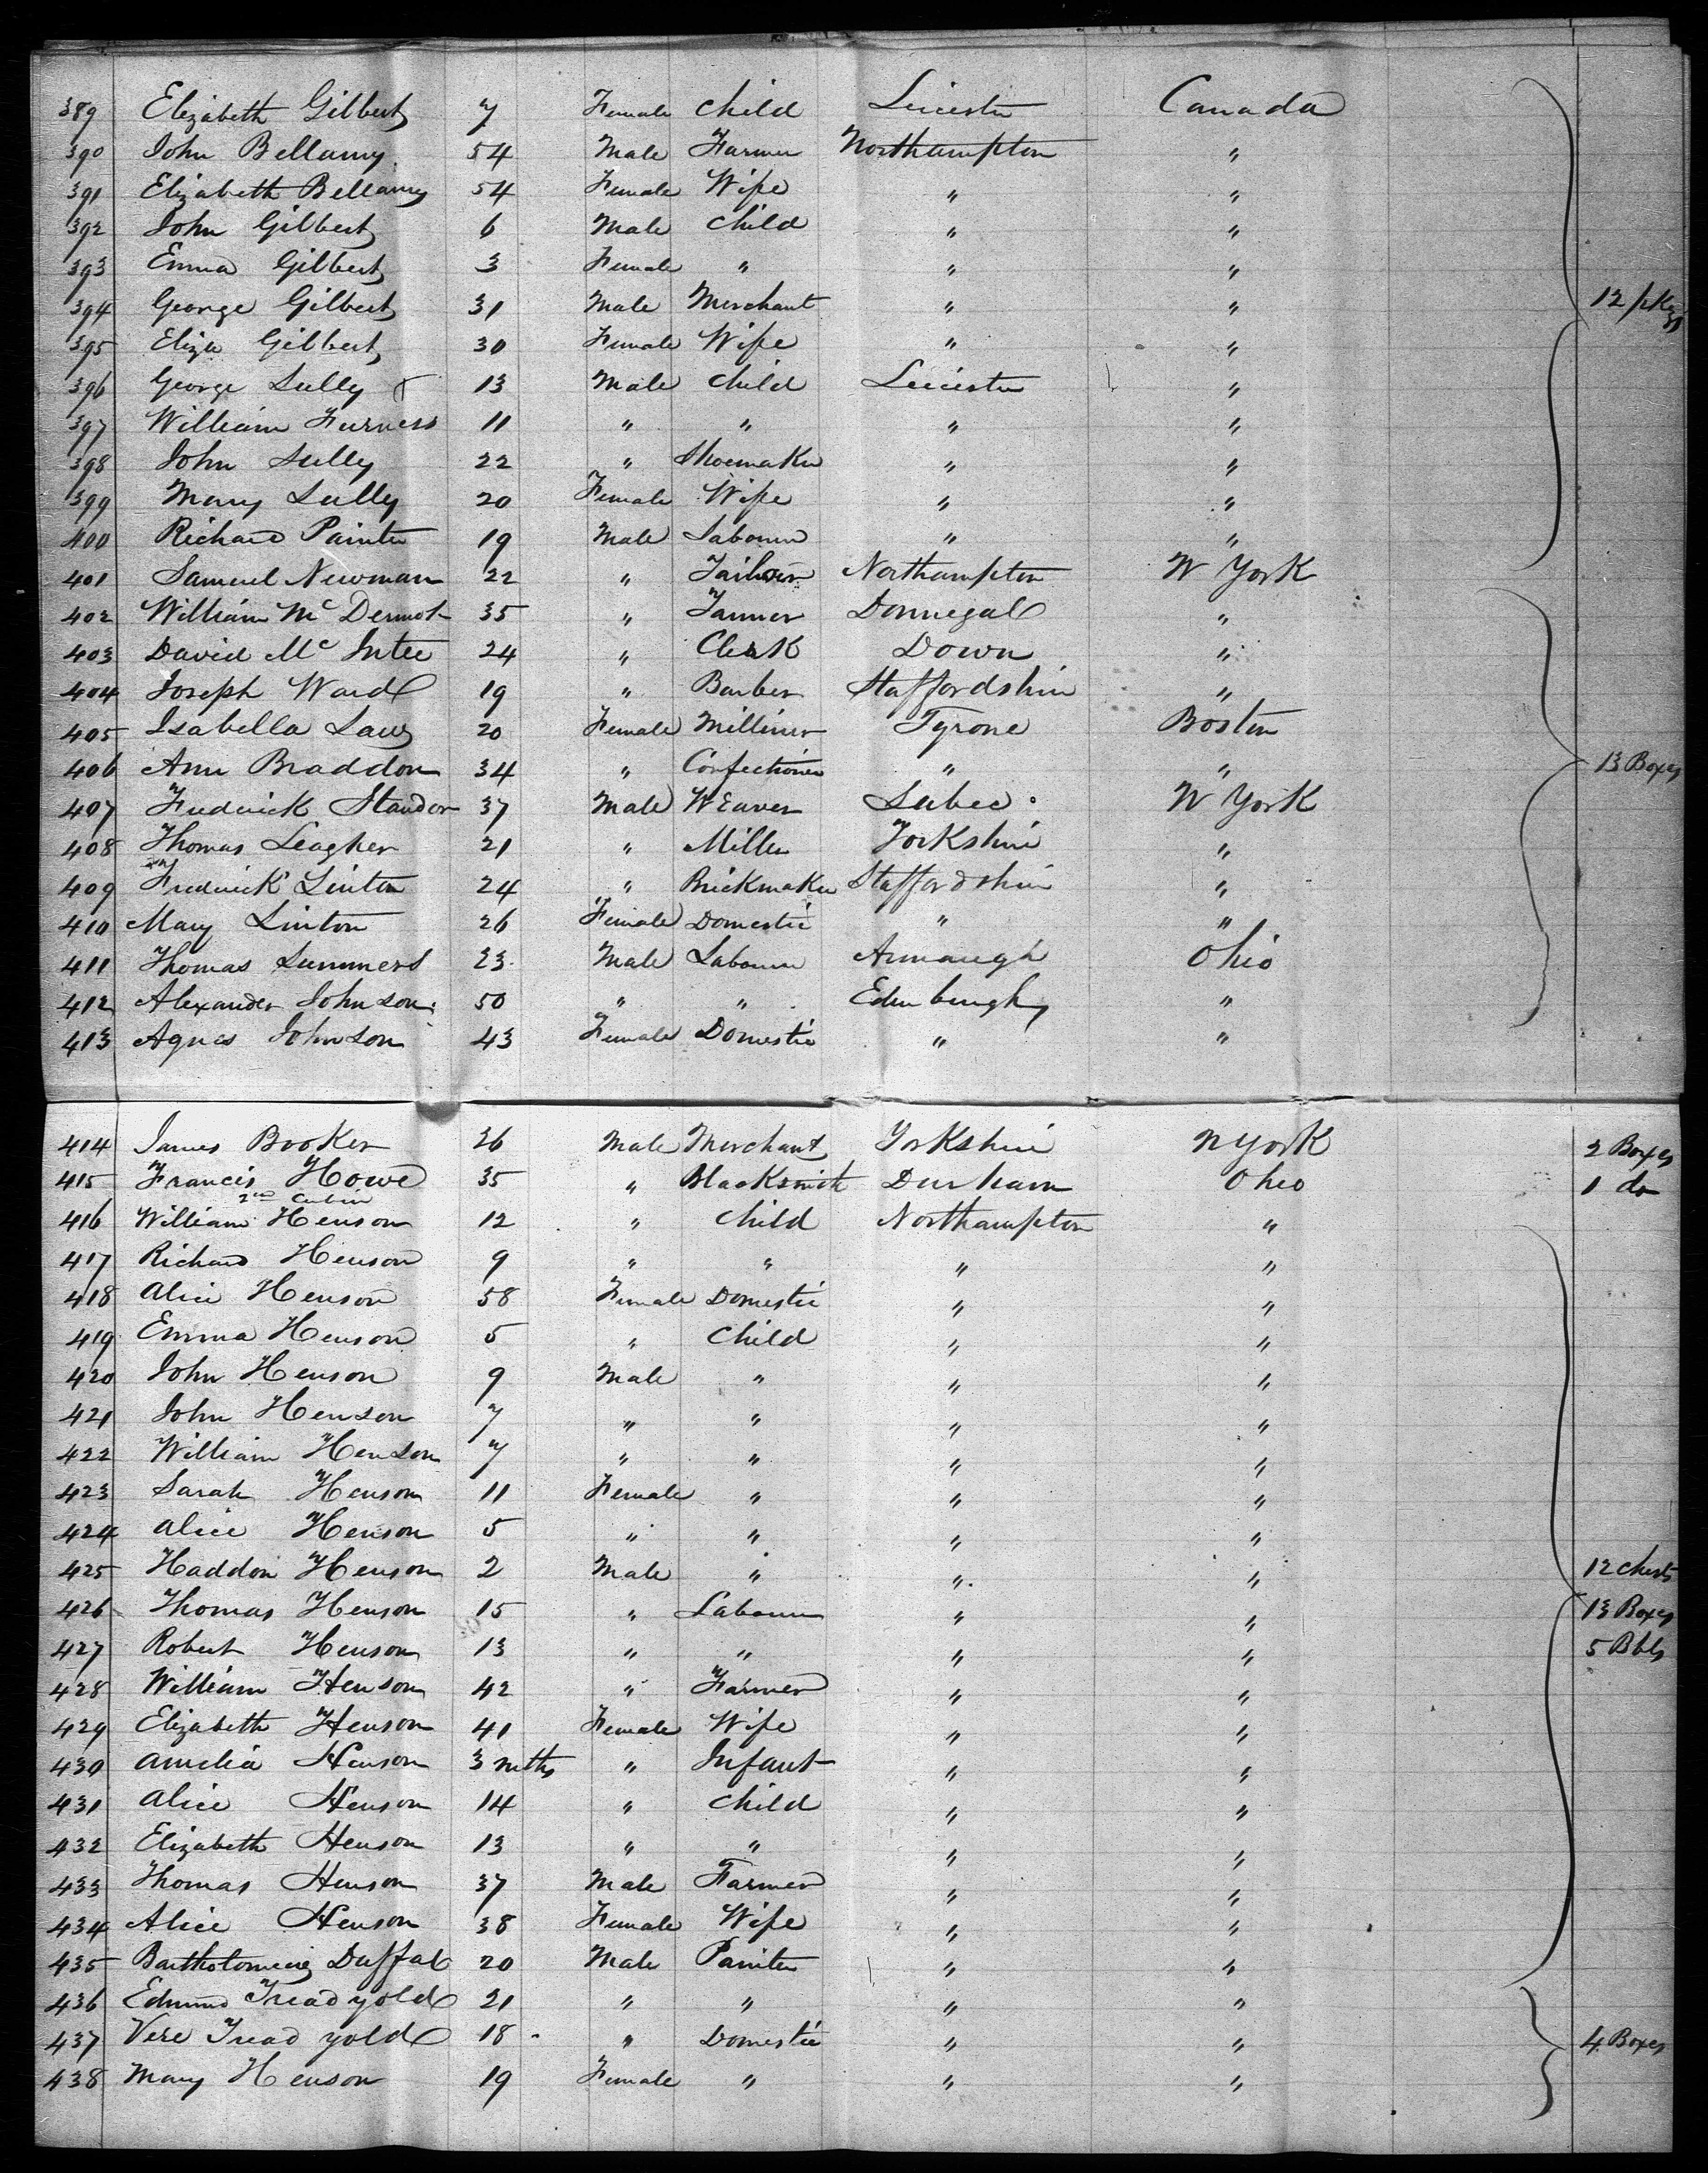 389 Elizabeth Gilbert 7 Female Child Leicester Canada
390 John Bellamy 54 Male Farmer Northampton "
391 Elizabeth Bellamy 54 Female Wife " "
392 John Gilbert 6 Male Child " "
393 Emma Gilbert 3 Female " " "
394 George Gilbert 31 Male Merchant " " 12 pkgs
395 Eliza Gilbert 30 Female Wife " "
396 George Sully 13 Male Child Leicester "
397 William Furness 11 " " " "
398 John Sully 22 " Shoemaker " "
399 Mary Sully 20 Female Wife " "
400 Richard Painter 19 Male Labourer " "
401 Samuel Newman 22 " Northampton N York
402 William Mc Dermot 35 " Tanner Donnegal "
403 David Mc Intee 24 " Clerk Down "
404 Joseph Ward 19 " Barber Staffordshire "
405 Isabella 20 Female Milliner Tyrone Boston
406 Ann Braddon 34 " Confectioner " " 13 Boxes
407 Frederick Standor 37 Male Weaver N York
408 Thomas 21 " Miller Yorkshire "
409 Frederick Linton 24 " Brickmaker Staffordshire "
410 Mary Linton 26 Female Domestic " "
411 Thomas Summers 23 Male Labourer Armaugh Ohio
412 Alexander Johnson 50 " " Edinburgh "
413 Agnes Johnson 43 Female Domestic " "
414 James Booker 26 Male Merchant Yorkshire N York 2 Boxes
415 Francis Howe 35 " Blacksmith Durham Ohio 1 do
2nd Cabin
416 William Henson 12 " Child Northampton "
417 Richard Henson 9 " " " "
418 Alice Henson 58 Female Domestic " "
419 Emma Henson 5 " Child " "
420 John Henson 9 Male " " "
421 John Henson 7 " " " "
422 William Henson 7 " " " "
423 Sarah Henson 11 Female " " "
424 Alice Henson 5 " " " "
425 Haddon Henson 2 Male " " " 12 Chests
426 Thomas Henson 15 " Labourer " " 13 Boxes
427 Robert Henson 13 " " " " 5 Bbls
428 William Henson 42 " Farmer " "
429 Elizabeth Henson 41 Female Wife " "
430 Amelia Henson 3 mths " Infant " "
431 Alice Henson 14 " Child " "
432 Elizabeth Henson 13 " " " "
433 Thomas Henson 37 Male Farmer " "
434 Alice Henson 38 Female Wife " "
435 Bartholomew 20 Male Painter " "
436 Edmund Treadgold 21 " " " "
437 Vere Treadgold 18 " Domestic " " 4 Boxes
438 Mary Henson 19 Female " " "